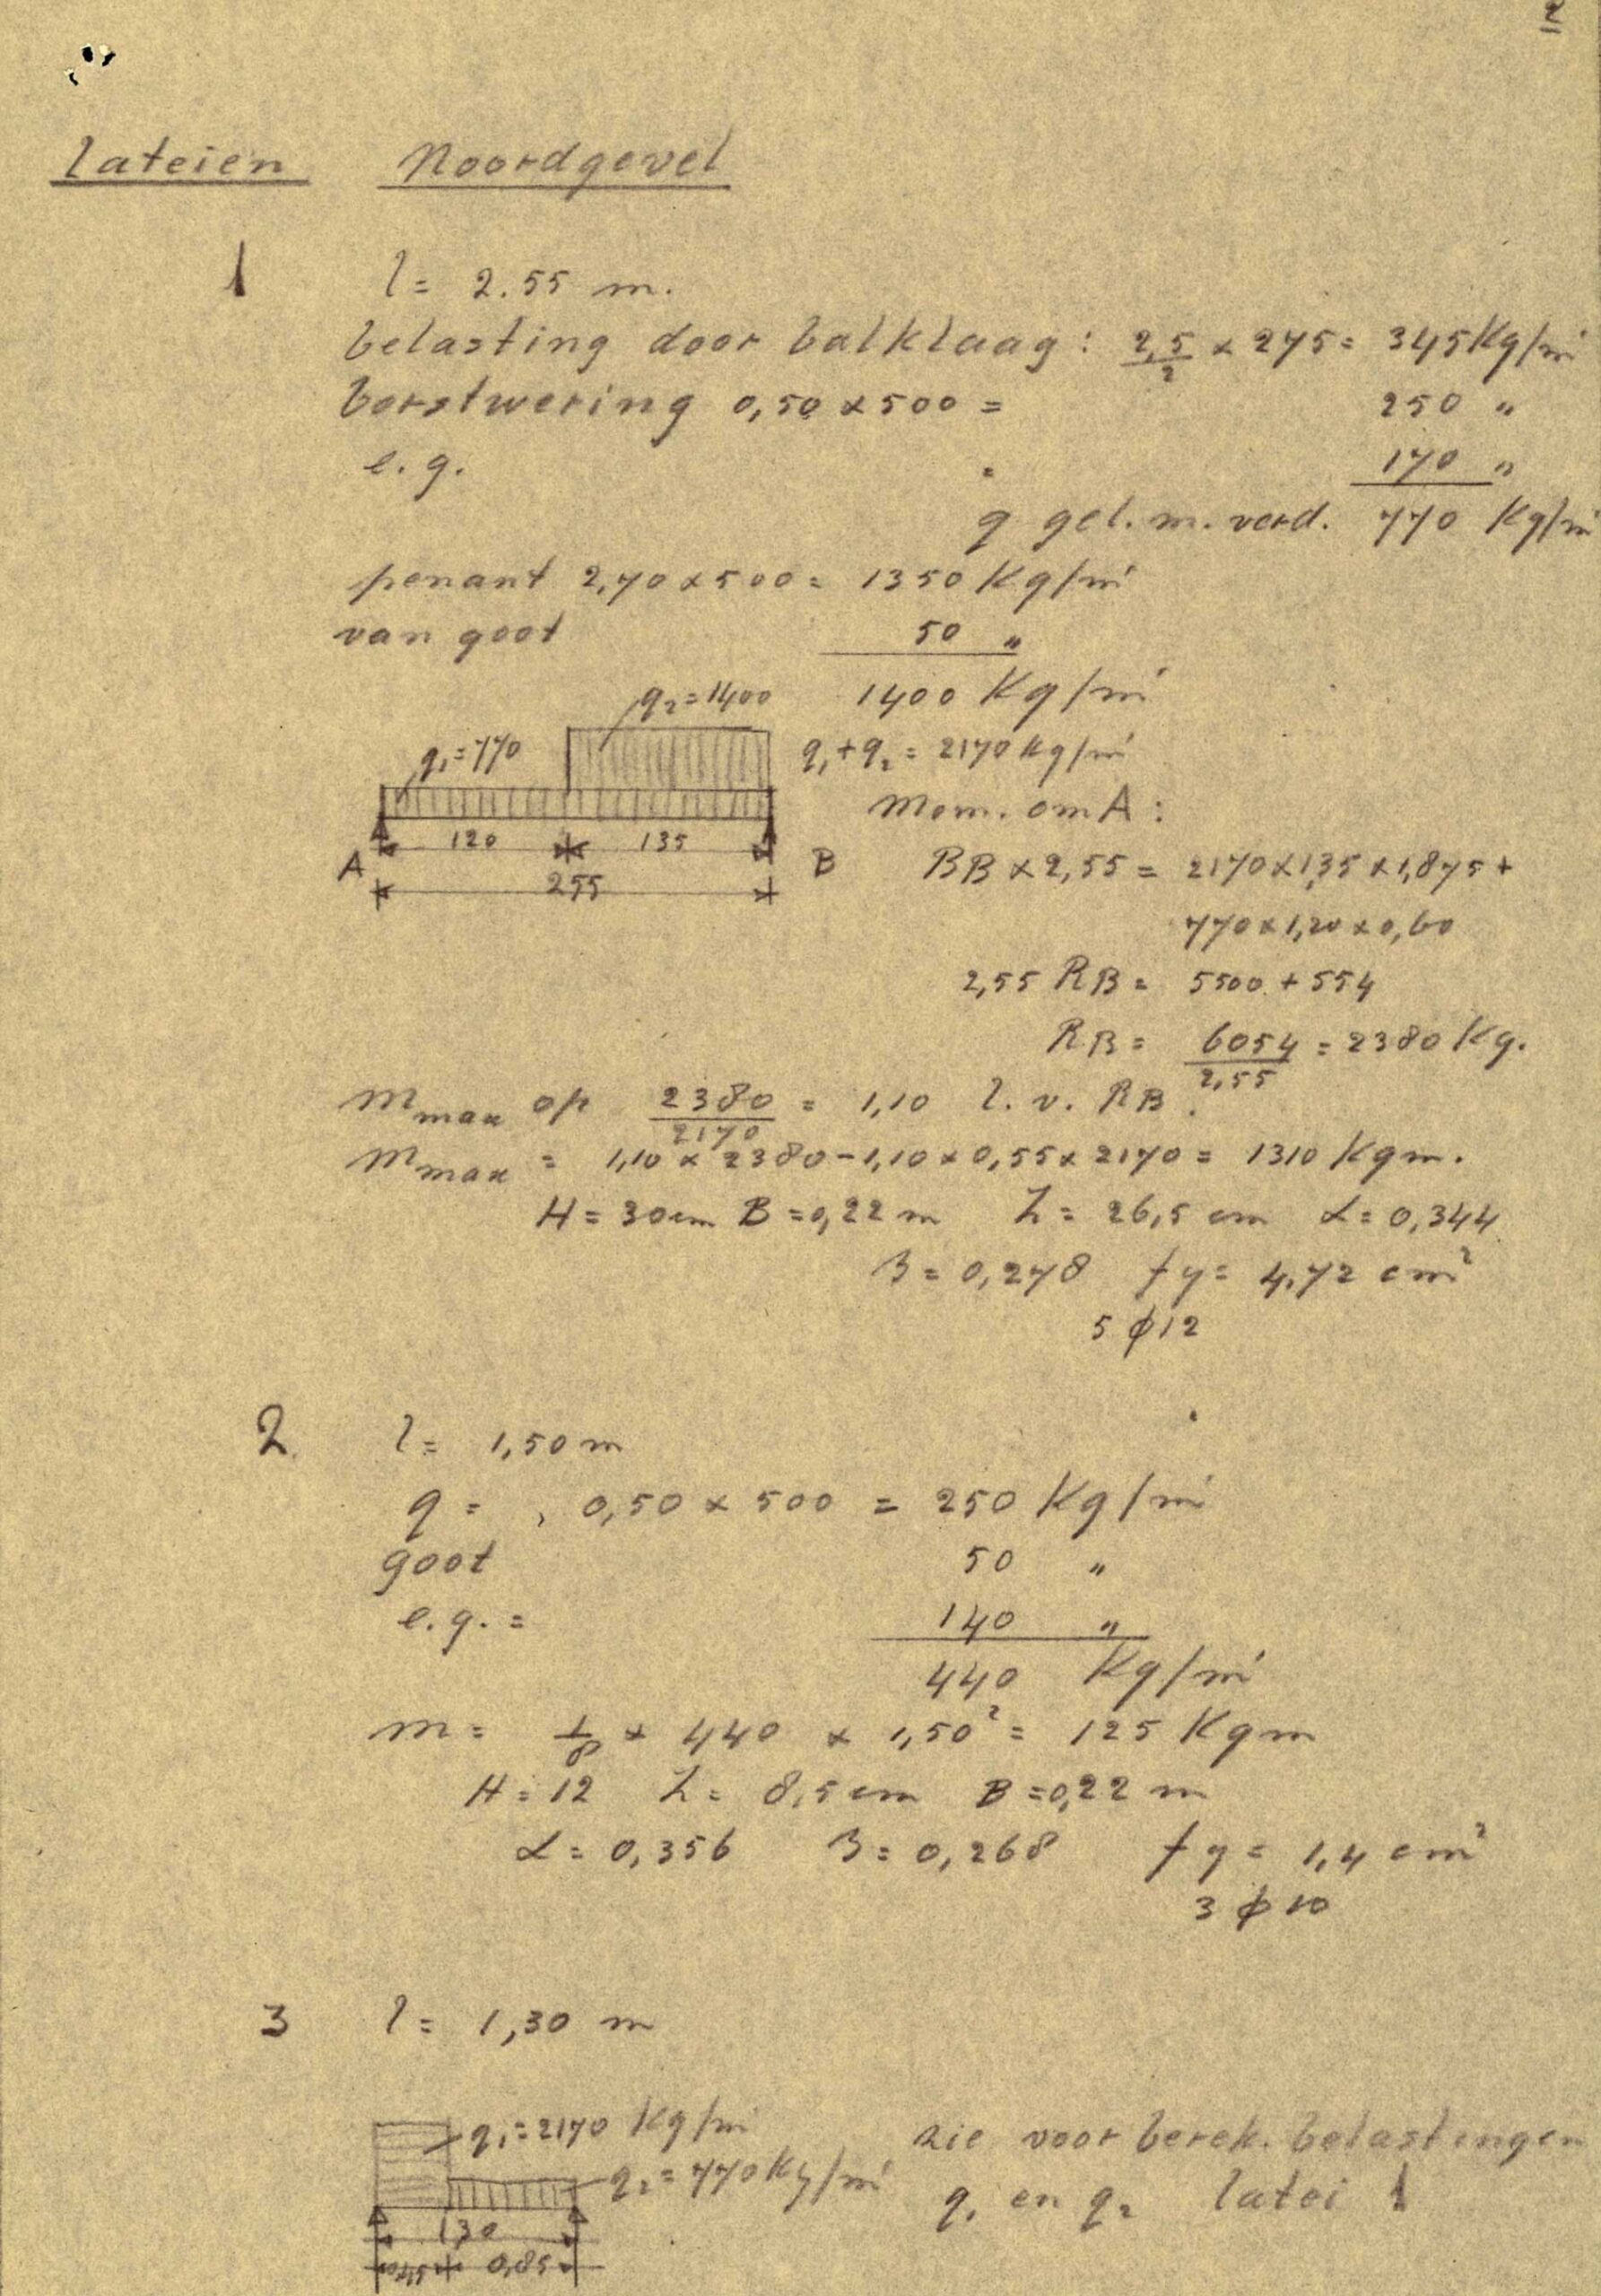 2
Lateien Noordgevel
1 l = 2.55 m.
belasting door balklaag: 2,5/2 x 275 = 345 Kg/m'
borstwering 0,50 x 500 = 250 "
e.g. = 170 "
q gel. m. verd. 770 Kg/m'
penant 2,70 x 500 = 1350 Kg/m'
van goot 50 "
1400 Kg/m'
q2 = 1400
q1 = 770
q1 + q2 = 2170 Kg/m'
120 135
A B
255
Mom. om A:
RB x 2,55 = 2170 x 1,35 x 1,875 +
770 x 1,20 x 0,60
2,55 RB = 5500 + 554
RB = 6054/2,55 = 2380 Kg.
M max op 2380/2170 = 1,10 l. v. RB.
M max = 1,10 x 2380 - 1,10 x 0,55 x 2170 = 1310 Kgm.
H = 30 cm B = 0,22 m h = 26,5 cm α = 0,344
β = 0,278 fy = 4,72 cm²
5 ϕ 12
2. l = 1,50 m
q = 0,50 x 500 = 250 Kg/m'
goot 50 "
e.g. = 140 "
440 Kg/m'
M = 1/8 x 440 x 1,50² = 125 Kgm
H = 12 h = 8,5 cm B = 0,22 m
α = 0,356 β = 0,268 fy = 1,4 cm²
3 ϕ 10
3 l = 1,30 m
q1 = 2170 Kg/m'
q2 = 770 Kg/m'
130
0,85
zie voor berek. belastingen
q1 en q2 latei 1